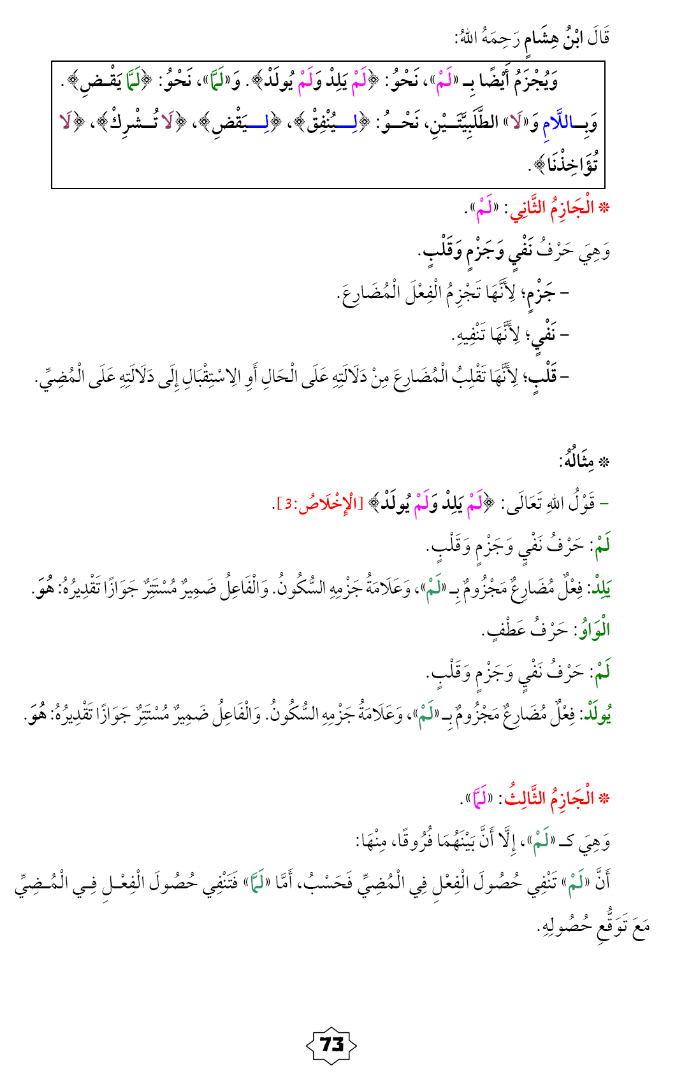 قَالَ ابْنُ هِشَامٍ رَحِمَهُ اللهُ:
وَيُجْزَمُ أَيْضًا بِـ «لَمْ»، نَحْوُ: ﴿لَمْ يَلِدْ وَلَمْ يُولَدْ﴾. وَ«لَمَّا»، نَحْوُ: ﴿لَمَّا يَقْـضِ﴾.
وَبِـاللَّامِ وَ«لَا» الطَّلَبِيَّتَـــيْنِ، نَحْــوُ: ﴿لِـــيُنْفِقْ﴾، ﴿لِـــيَقْضِ﴾، ﴿لَا تُــشْرِكْ﴾، ﴿لَا
تُؤَاخِذْنَا﴾.
* الْجَازِمُ الثَّانِي: «لَمْ».
وَهِيَ حَرْفُ نَفْيٍ وَجَزْمٍ وَقَلْبٍ.
– جَزْمٍ؛ لِأَنَّهَا تَجْزِمُ الْفِعْلَ الْمُضَارِعَ.
– نَفْيٍ؛ لِأَنَّهَا تَنْفِيهِ.
– قَلْبٍ؛ لِأَنَّهَا تَقْلِبُ الْمُضَارِعَ مِنْ دَلَالَتِهِ عَلَى الْحَالِ أَوِ الِاسْتِقْبَالِ إِلَى دَلَالَتِهِ عَلَى الْمُضِيِّ.
* مِثَالُهُ:
– قَوْلُ اللهِ تَعَالَى: ﴿لَمْ يَلِدْ وَلَمْ يُولَدْ﴾ [الْإِخْلَاصُ:3].
لَمْ: حَرْفُ نَفْيٍ وَجَزْمٍ وَقَلْبٍ.
يَلِدْ: فِعْلٌ مُضَارِعٌ مَجْزُومٌ بِـ «لَمْ»، وَعَلَامَةُ جَزْمِهِ السُّكُونُ. وَالْفَاعِلُ ضَمِيرٌ مُسْتَتِرٌ جَوَازًا تَقْدِيرُهُ: هُوَ.
الْوَاوُ: حَرْفُ عَطْفٍ.
لَمْ: حَرْفُ نَفْيٍ وَجَزْمٍ وَقَلْبٍ.
يُولَدْ: فِعْلٌ مُضَارِعٌ مَجْزُومٌ بِـ «لَمْ»، وَعَلَامَةُ جَزْمِهِ السُّكُونُ. وَالْفَاعِلُ ضَمِيرٌ مُسْتَتِرٌ جَوَازًا تَقْدِيرُهُ: هُوَ.
* الْجَازِمُ الثَّالِثُ: «لَمَّا».
وَهِيَ كـ «لَمْ»، إِلَّا أَنَّ بَيْنَهُمَا فُرُوقًا، مِنْهَا:
أَنَّ «لَمْ» تَنْفِي حُصُولَ الْفِعْلِ فِي الْمُضِيِّ فَحَسْبُ، أَمَّا «لَمَّا» فَتَنْفِي حُصُولَ الْفِعْـلِ فِـي الْمُـضِيِّ
مَعَ تَوَقُّعِ حُصُولِهِ.
73